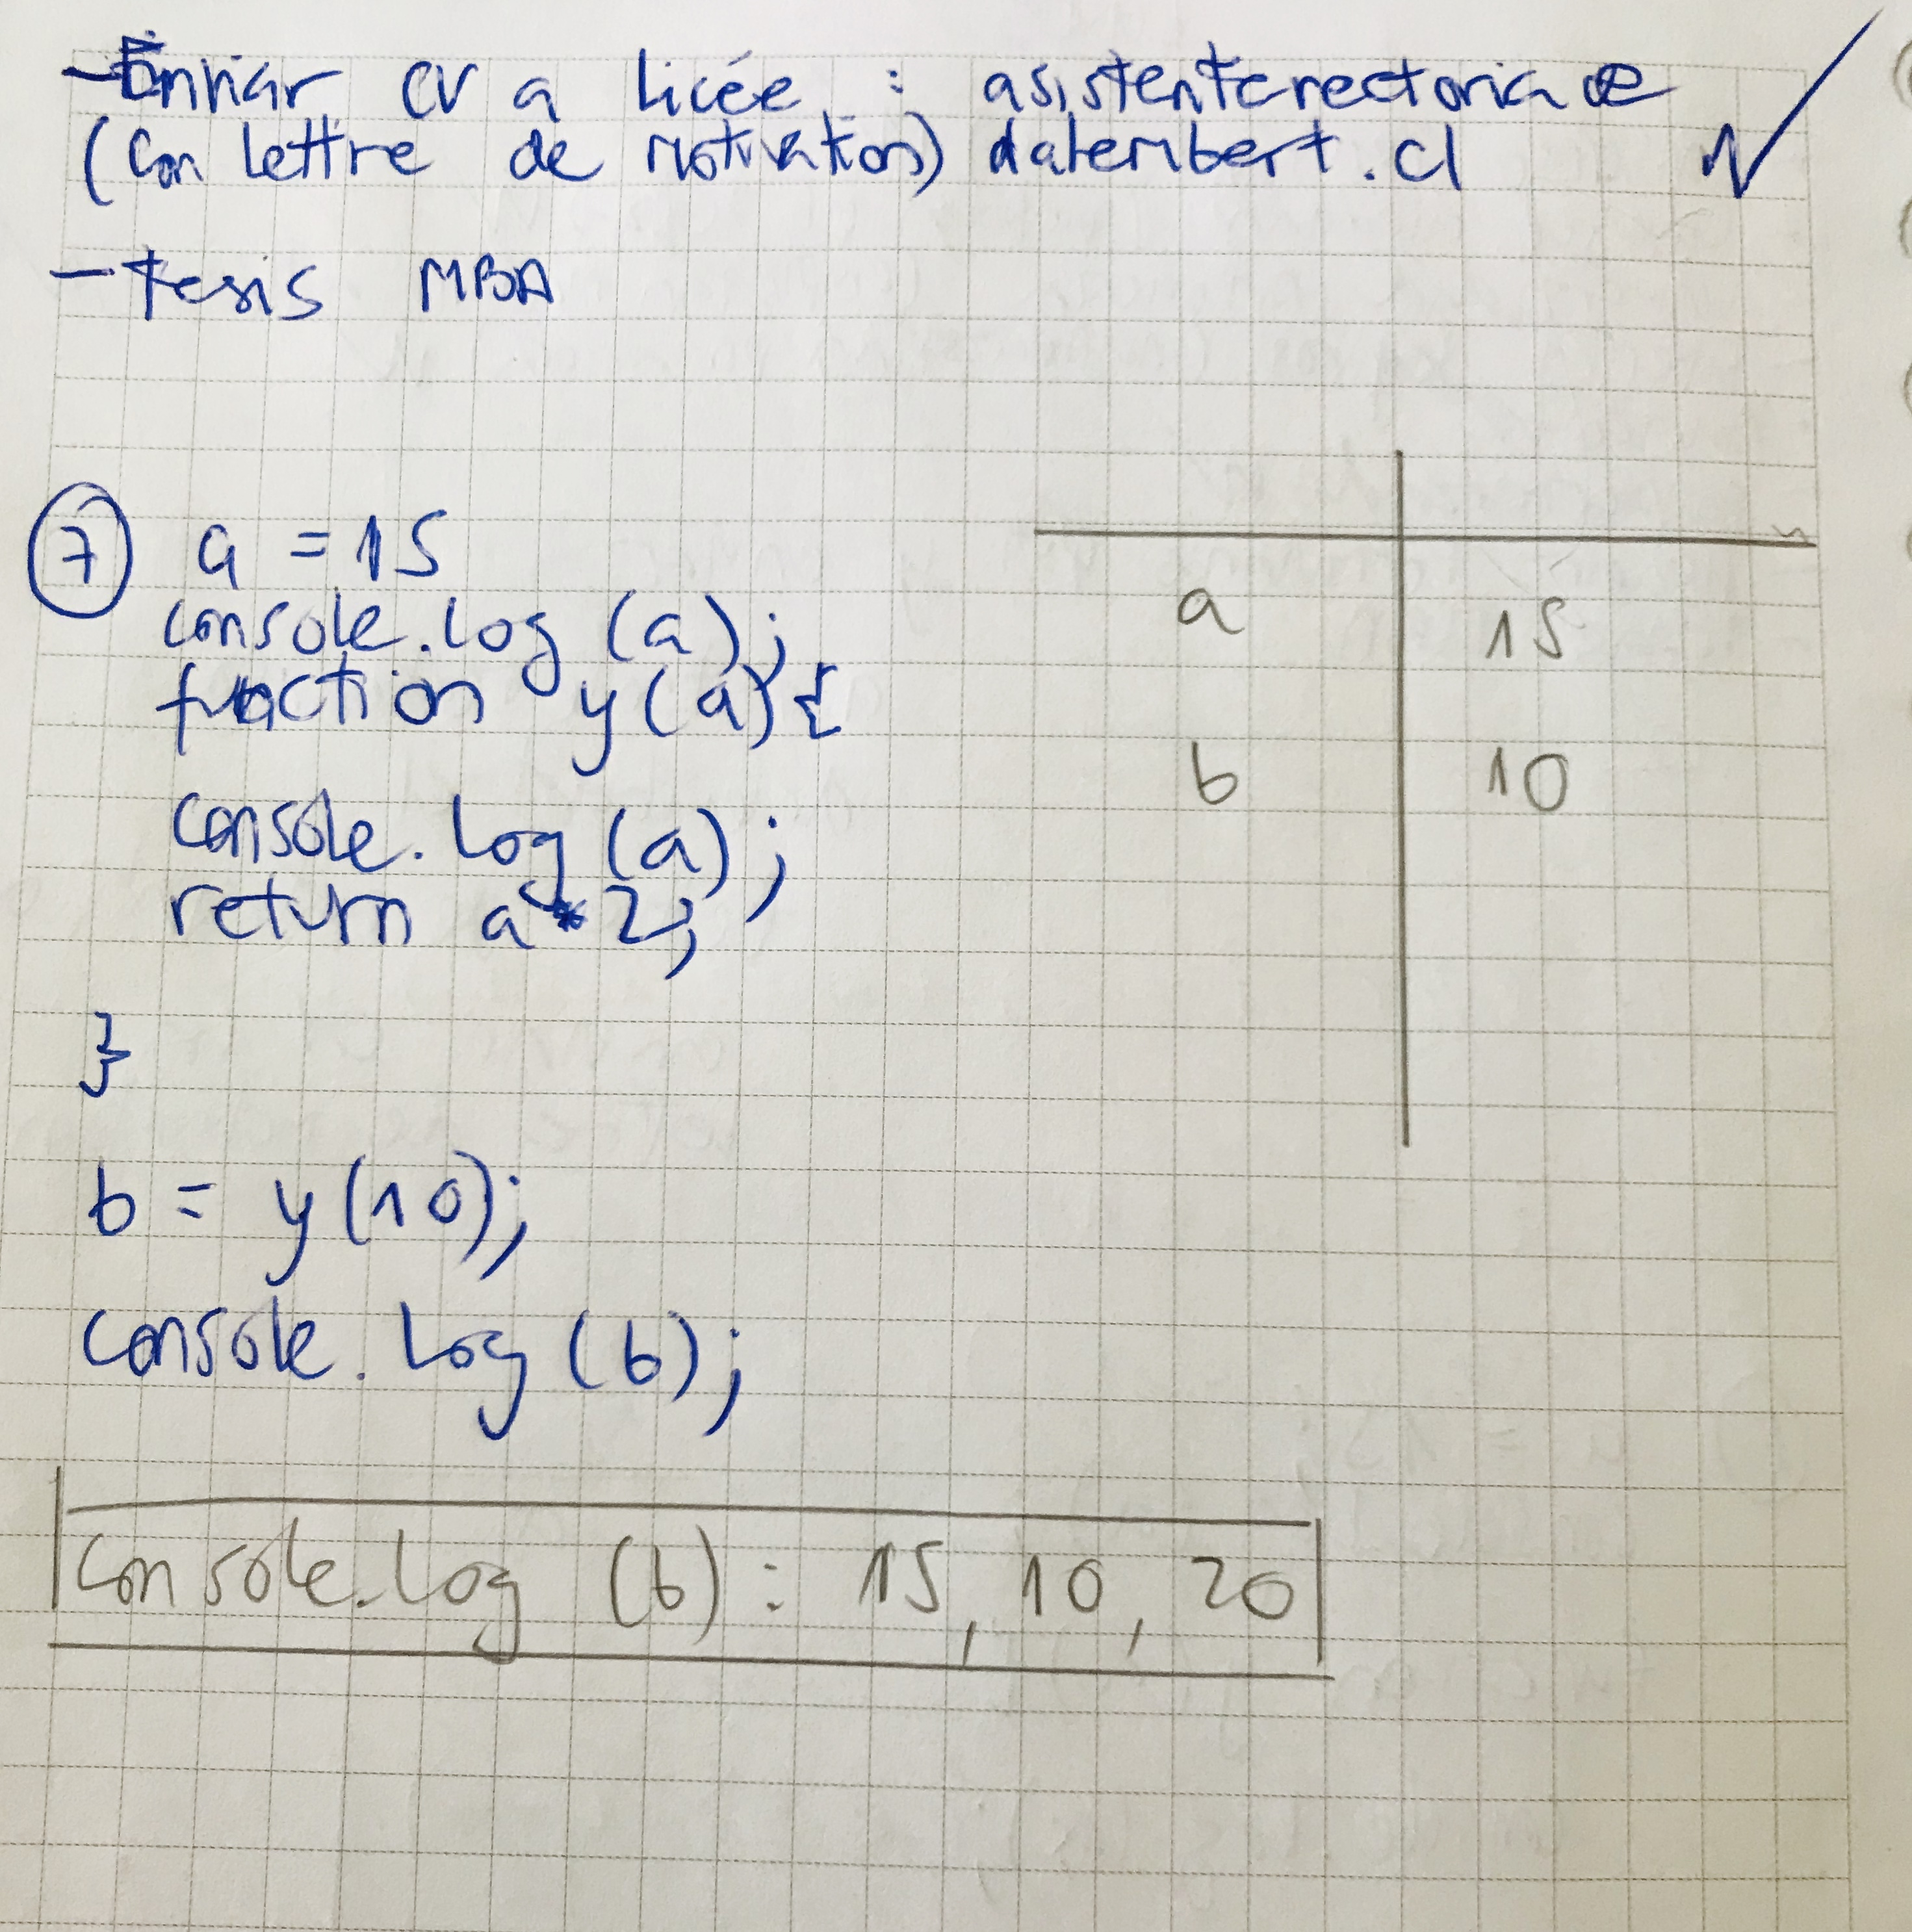 -Enviar CV a Licée : asistenterectoria@
(Con Lettre de Motivation) dalembert.cl
-tesis MBA
7 a = 15
console.log (a);
function y(a){
console.log (a);
return a*2;
}
b = y(10);
console.log (b);
a 15
b 10
Console.log (b) : 15, 10, 20